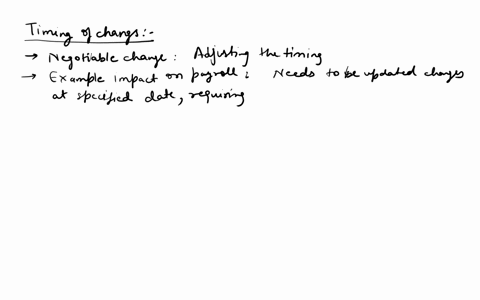 Timing of change:-
→ Negotiable change: Adjusting the timing
→ Example impact on payroll: Needs to be updated changes
at specified date, requiring